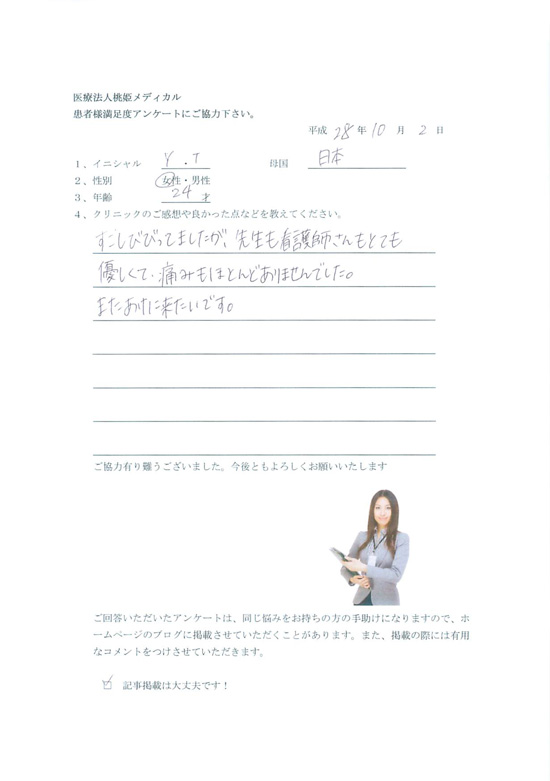 医療法人桃姫メディカル
患者様満足度アンケートにご協力下さい。
平成 28年 10月 2日
1、イニシャル Y・T 母国 日本
2、性別 女性・男性
3、年齢 24才
4、クリニックのご感想や良かった点などを教えてください。
すごしびびってましたが、先生も看護師さんもとても
優しくて、痛みもほとんどありませんでした。
また に来たいです。
ご協力有り難うございました。今後ともよろしくお願いいたします
ご回答いただいたアンケートは、同じ悩みをお持ちの方の手助けになりますので、ホ
ームページのブログに掲載させていただくことがあります。また、掲載の際には有用
なコメントをつけさせていただきます。
☑ 記事掲載は大丈夫です！